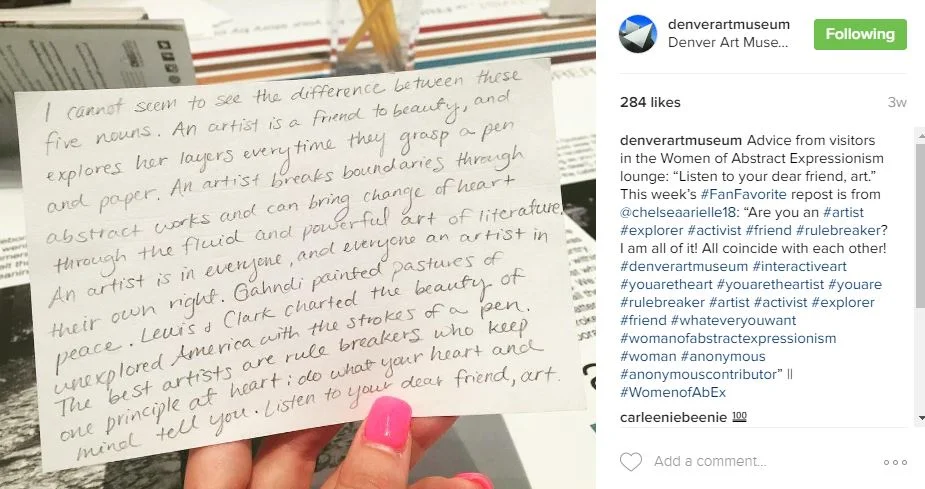 I cannot seem to see the difference between these
five nouns. An artist is a friend to beauty, and
explores her layers everytime they grasp a pen
and paper. An artist breaks boundaries through
abstract works and can bring change of heart
through the fluid and powerful art of literature.
An artist is in everyone, and everyone an artist in
their own right. Gahndi painted pastures of
peace. Lewis & Clark charted the beauty of
unexplored America with the strokes of a pen.
The best artists are rule breakers who keep
one principle at heart: do what your heart and
mind tell you. Listen to your dear friend, art.
denverartmuseum
Denver Art Muse...
Following
284 likes
3w
denverartmuseum Advice from visitors
in the Women of Abstract Expressionism
lounge: “Listen to your dear friend, art.”
This week’s #FanFavorite repost is from
@chelseaarielle18: “Are you an #artist
#explorer #activist #friend #rulebreaker?
I am all of it! All coincide with each other!
#denverartmuseum #interactiveart
#youaretheart #youaretheartist #youare
#rulebreaker #artist #activist #explorer
#friend #whateveryouwant
#womanofabstractexpressionism
#woman #anonymous
#anonymouscontributor” ||
#WomenofAbEx
carleeniebeenie 💯
Add a comment...